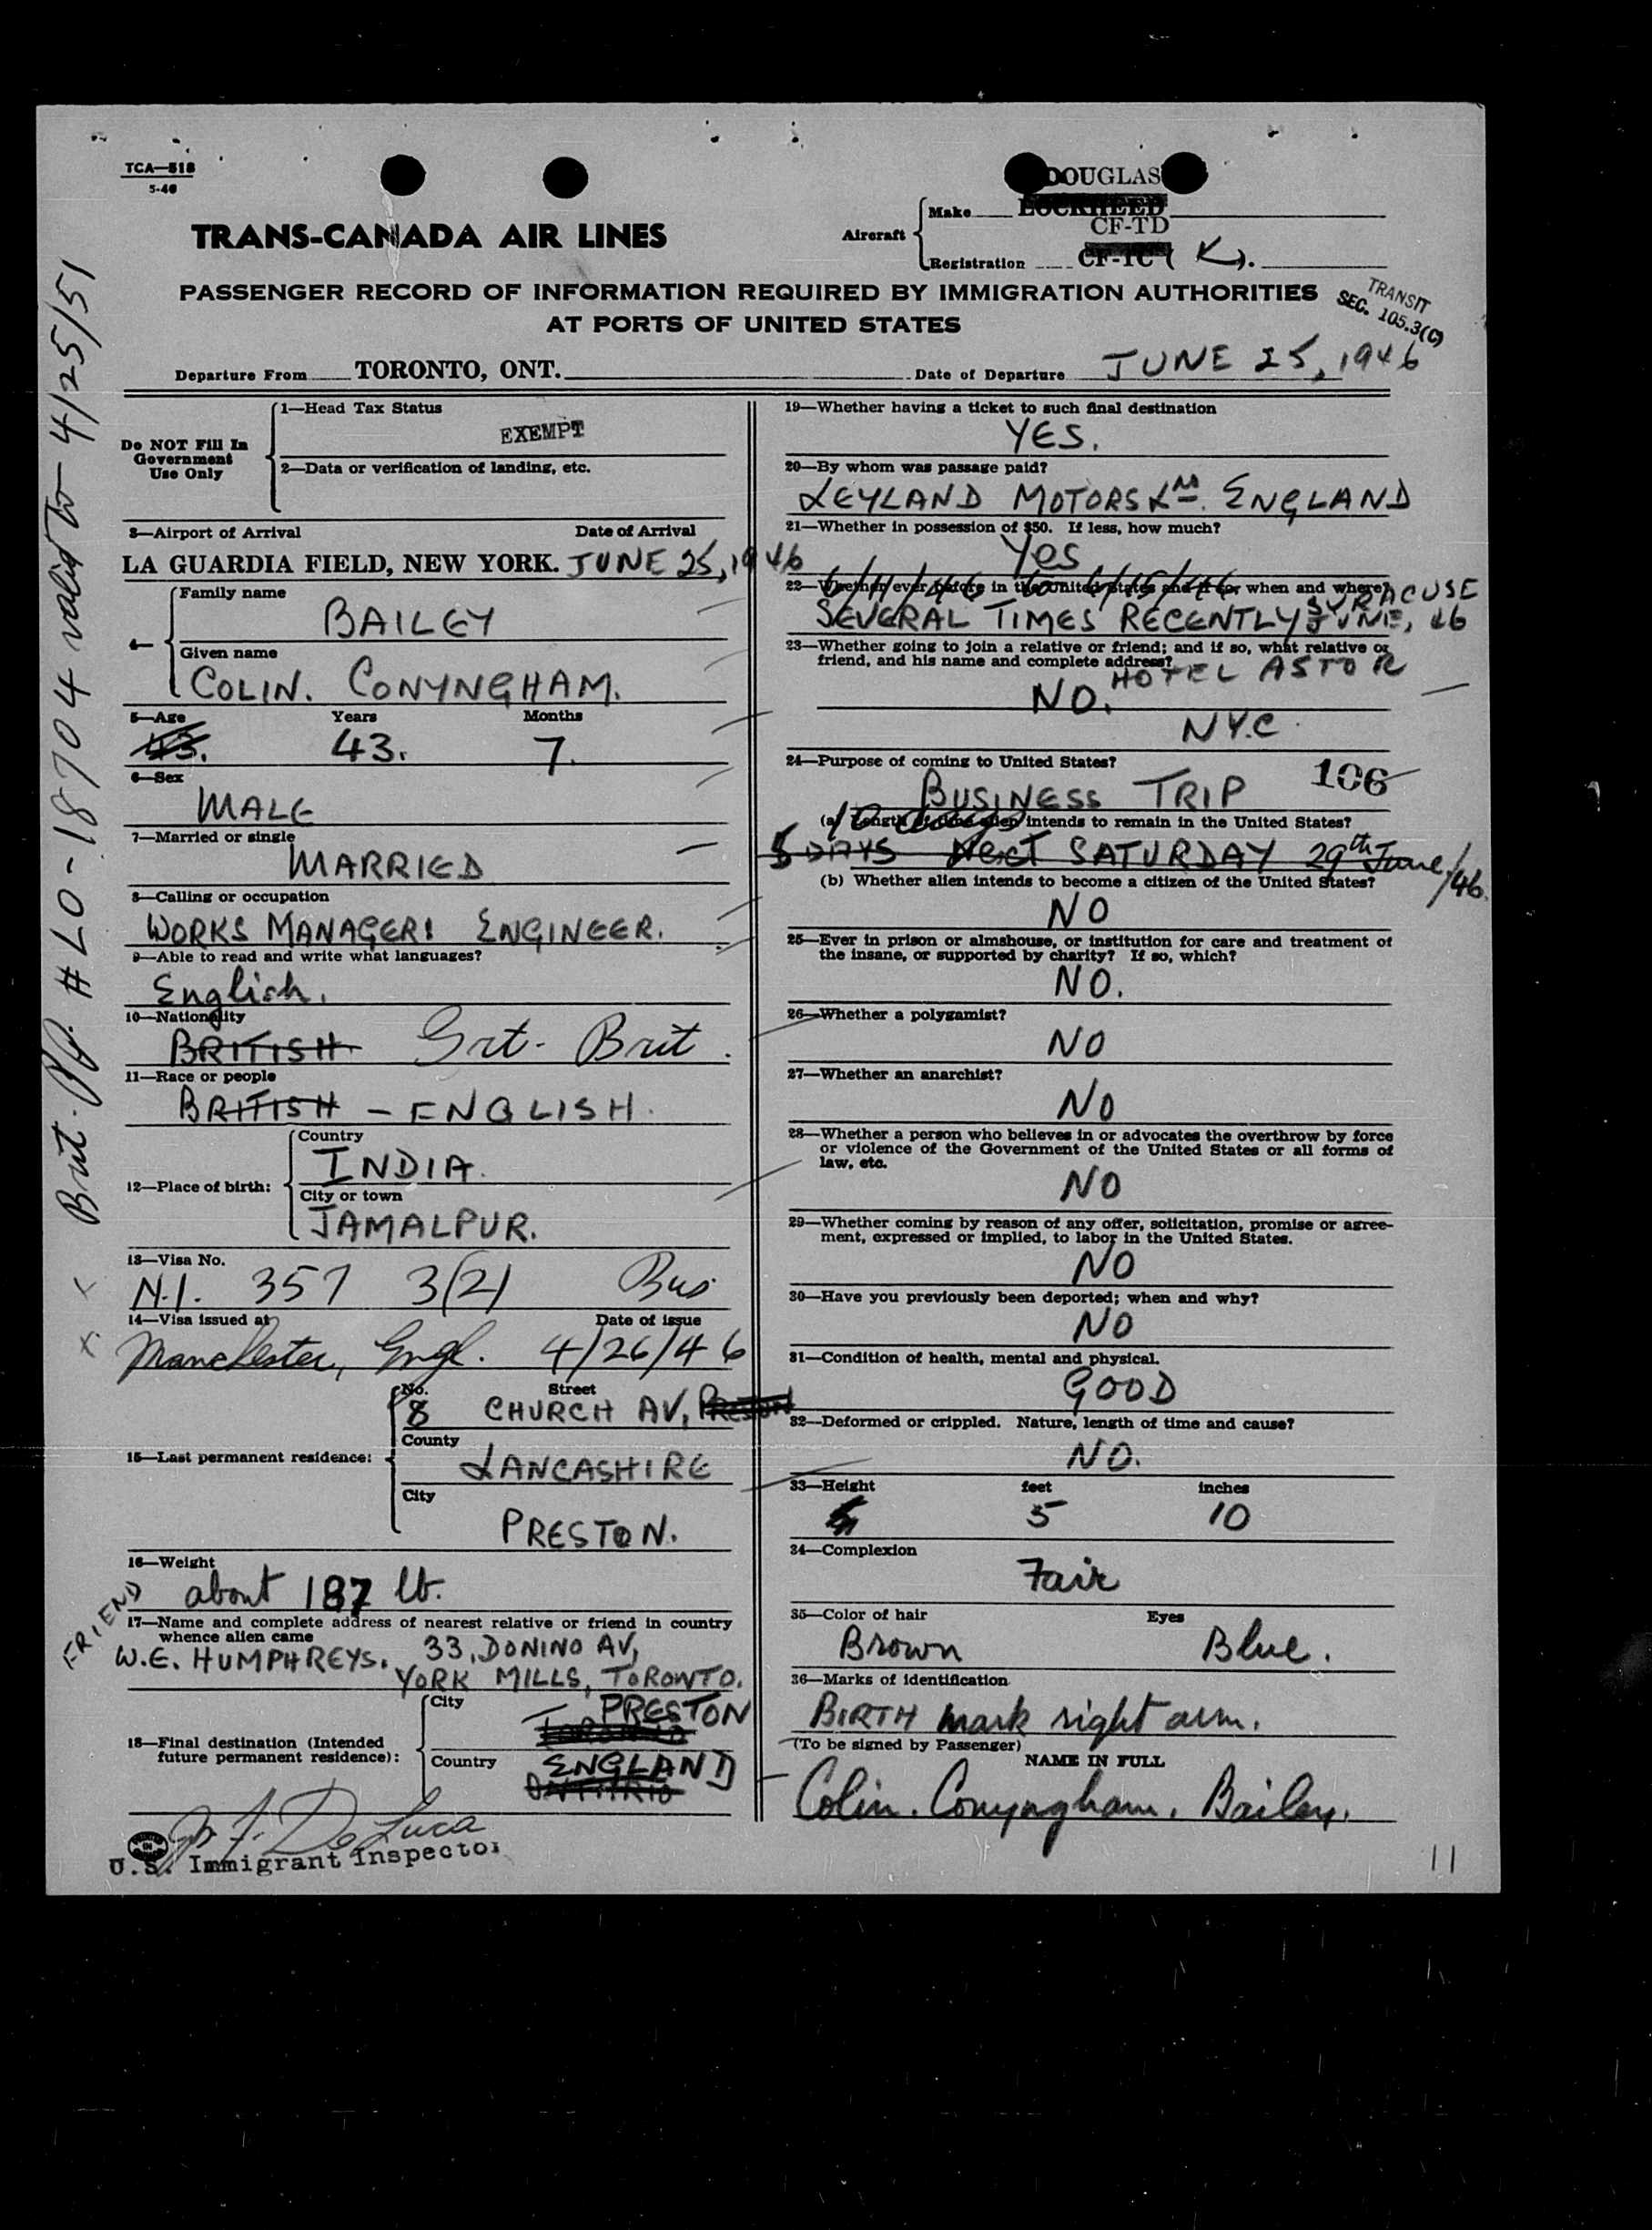 TCA—518
5-46
DOUGLAS
Make LOCKHEED
TRANS-CANADA AIR LINES
Aircraft
CF-TD
Registration CF-TC ( K ).
PASSENGER RECORD OF INFORMATION REQUIRED BY IMMIGRATION AUTHORITIES
AT PORTS OF UNITED STATES
TRANSIT
SEC. 105.3(C)
Departure From TORONTO, ONT. Date of Departure JUNE 25, 1946
Brit. PP. # LO-18704 valid to 4/25/51
Do NOT Fill In
Government
Use Only
1—Head Tax Status
EXEMPT
2—Data or verification of landing, etc.
3—Airport of Arrival Date of Arrival
LA GUARDIA FIELD, NEW YORK. JUNE 25, 1946
4—
Family name
BAILEY
Given name
COLIN. CONYNGHAM.
5—Age Years Months
43. 43. 7.
6—Sex
MALE
7—Married or single
MARRIED
8—Calling or occupation
WORKS MANAGER: ENGINEER.
9—Able to read and write what languages?
English.
10—Nationality
BRITISH Grt- Brit.
11—Race or people
BRITISH - ENGLISH.
12—Place of birth:
Country
INDIA.
City or town
JAMALPUR.
13—Visa No.
N.I. 357 3(2) Bus
14—Visa issued at Date of issue
Manchester, Engl. 4/26/46
15—Last permanent residence:
No. Street
8 CHURCH AV, PRESTON
County
LANCASHIRE
City
PRESTON.
16—Weight
about 187 lb.
FRIEND
17—Name and complete address of nearest relative or friend in country
whence alien came
W.E. HUMPHREYS. 33, DONINO AV,
YORK MILLS, TORONTO.
18—Final destination (Intended
future permanent residence):
City PRESTON
TORONTO
Country ENGLAND
ONTARIO
De Luca
U.S. Immigrant Inspector
19—Whether having a ticket to such final destination
YES.
20—By whom was passage paid?
LEYLAND MOTORS Ltd. ENGLAND
21—Whether in possession of $50. If less, how much?
Yes
22—Whether ever before in the United States and if so, when and where?
SYRACUSE
SEVERAL TIMES RECENTLY JUNE, 46
23—Whether going to join a relative or friend; and if so, what relative or
friend, and his name and complete address?
HOTEL ASTOR
NO.
N.Y.C.
24—Purpose of coming to United States?
106
BUSINESS TRIP
10 days
(a) Length of time alien intends to remain in the United States?
5 DAYS Next SATURDAY 29th June/46.
(b) Whether alien intends to become a citizen of the United States?
NO
25—Ever in prison or almshouse, or institution for care and treatment of
the insane, or supported by charity? If so, which?
NO.
26—Whether a polygamist?
NO
27—Whether an anarchist?
NO
28—Whether a person who believes in or advocates the overthrow by force
or violence of the Government of the United States or all forms of
law, etc.
NO
29—Whether coming by reason of any offer, solicitation, promise or agree-
ment, expressed or implied, to labor in the United States.
NO
30—Have you previously been deported; when and why?
NO
31—Condition of health, mental and physical.
GOOD
32—Deformed or crippled. Nature, length of time and cause?
NO.
33—Height feet inches
5 10
34—Complexion
Fair
35—Color of hair Eyes
Brown Blue.
36—Marks of identification
BIRTH mark right arm.
(To be signed by Passenger)
NAME IN FULL
Colin. Conyngham. Bailey.
11